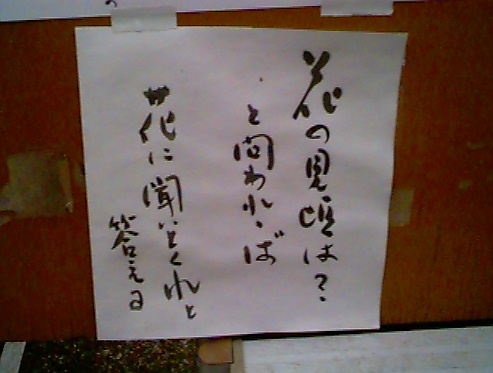 花の見頃は?
と問われゝば
花に聞いとくれと
答える